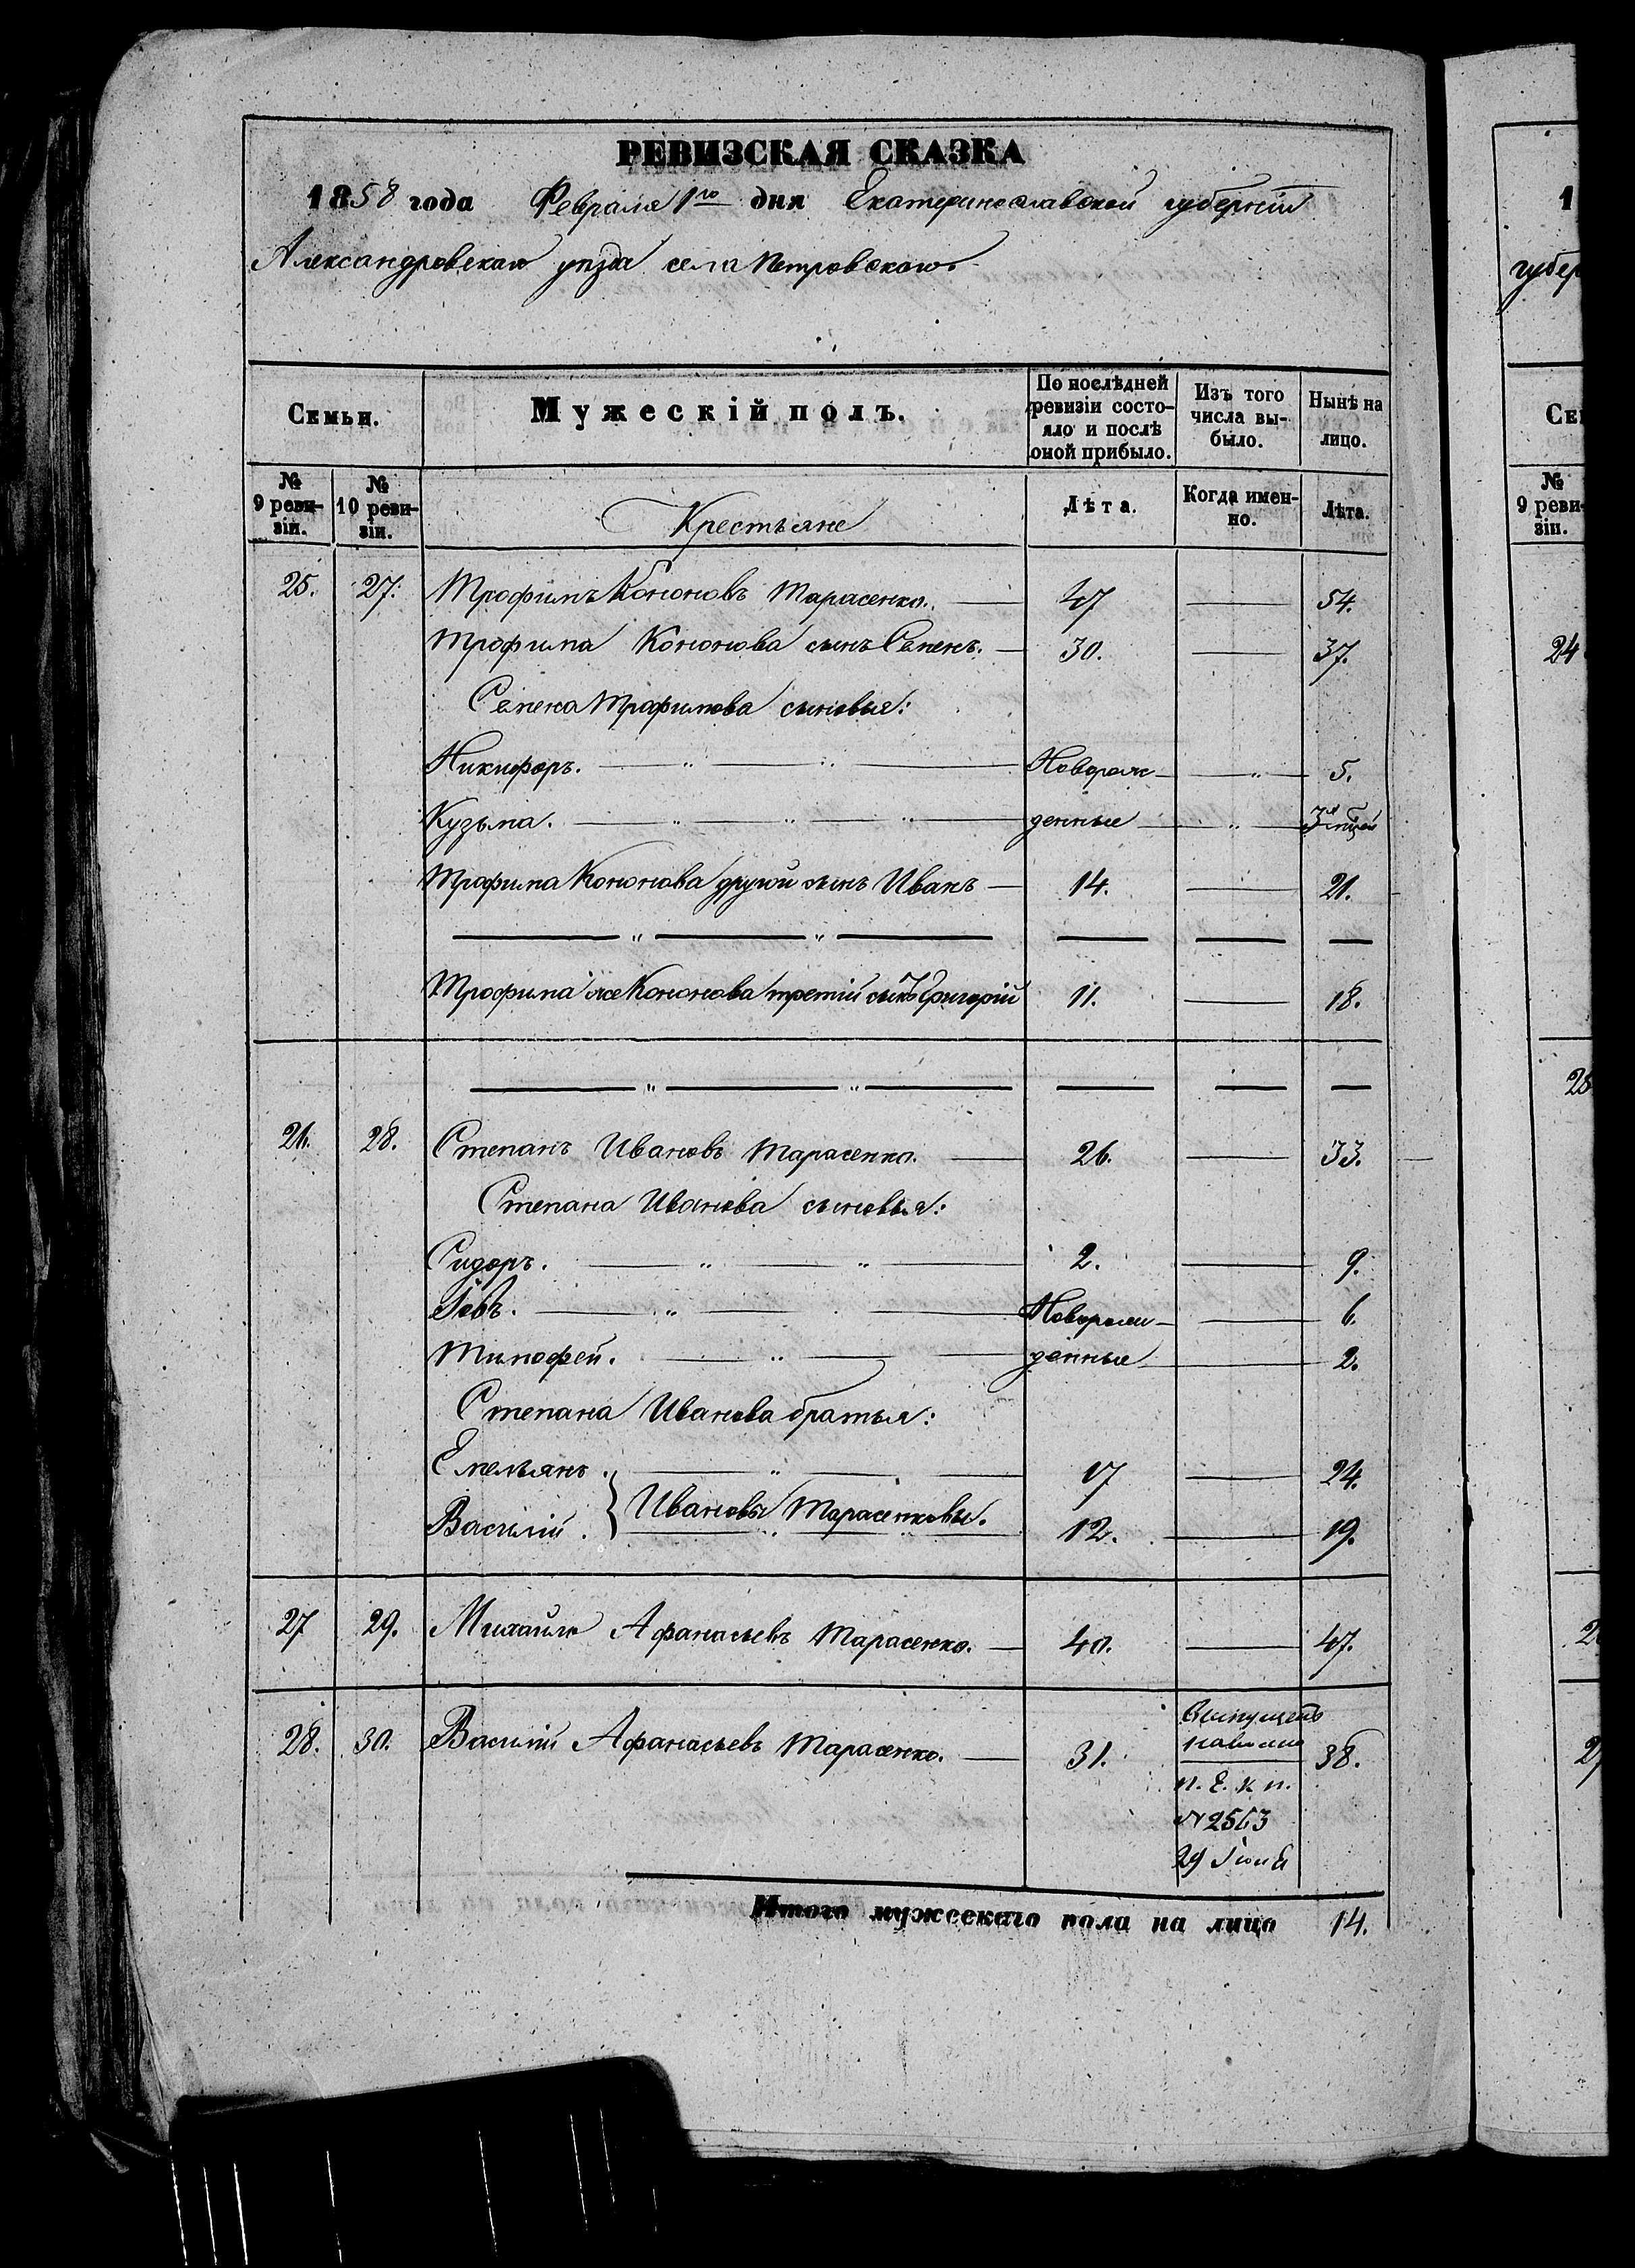 РЕВИЗСКАЯ СКАЗКА
1858 года Февраля 1го дня Екатеринославской губернiи
Александровскаго уѣзда села Петровскаго
Семьи. Мужескiй полъ. По послѣдней ревизiи состояло и послѣ оной прибыло. Изъ того числа выбыло. Нынѣ на лицо.
№ 9 ревизiи. № 10 ревизiи. Крестьяне Лѣта. Когда именно. Лѣта.
25. 27. Трофимъ Кононовъ Тарасенко. 47 54.
Трофима Кононова сынъ Семенъ. 30. 37.
Семена Трафимова сыновья:
Никифоръ. Новорож- 5.
Кузьма. денные 3
Трофима Кононова другой сынъ Иванъ 14. 21.
Трофима же Кононова третiй сынъ Григорiй 11. 18.
26. 28. Степанъ Ивановъ Тарасенко. 26. 33.
Степана Иванова сыновья:
Сидоръ. 2. 9.
Iовъ. Новорож- 6.
Тимофей. денные 2.
Степана Иванова братья:
Емельянъ. 17 24.
Василiй. } Ивановы Тарасенковы. 12. 19.
27 29. Михайло Афанасьевъ Тарасенко. 40. 47.
28. 30. Василiй Афанасьевъ Тарасенко. 31. 38.
п. Е. К. п.
№ 2563
29 Iюня
Итого мужескаго пола на лицо 14.
1
губер
Сем
№
9 реви-
зiи.
24